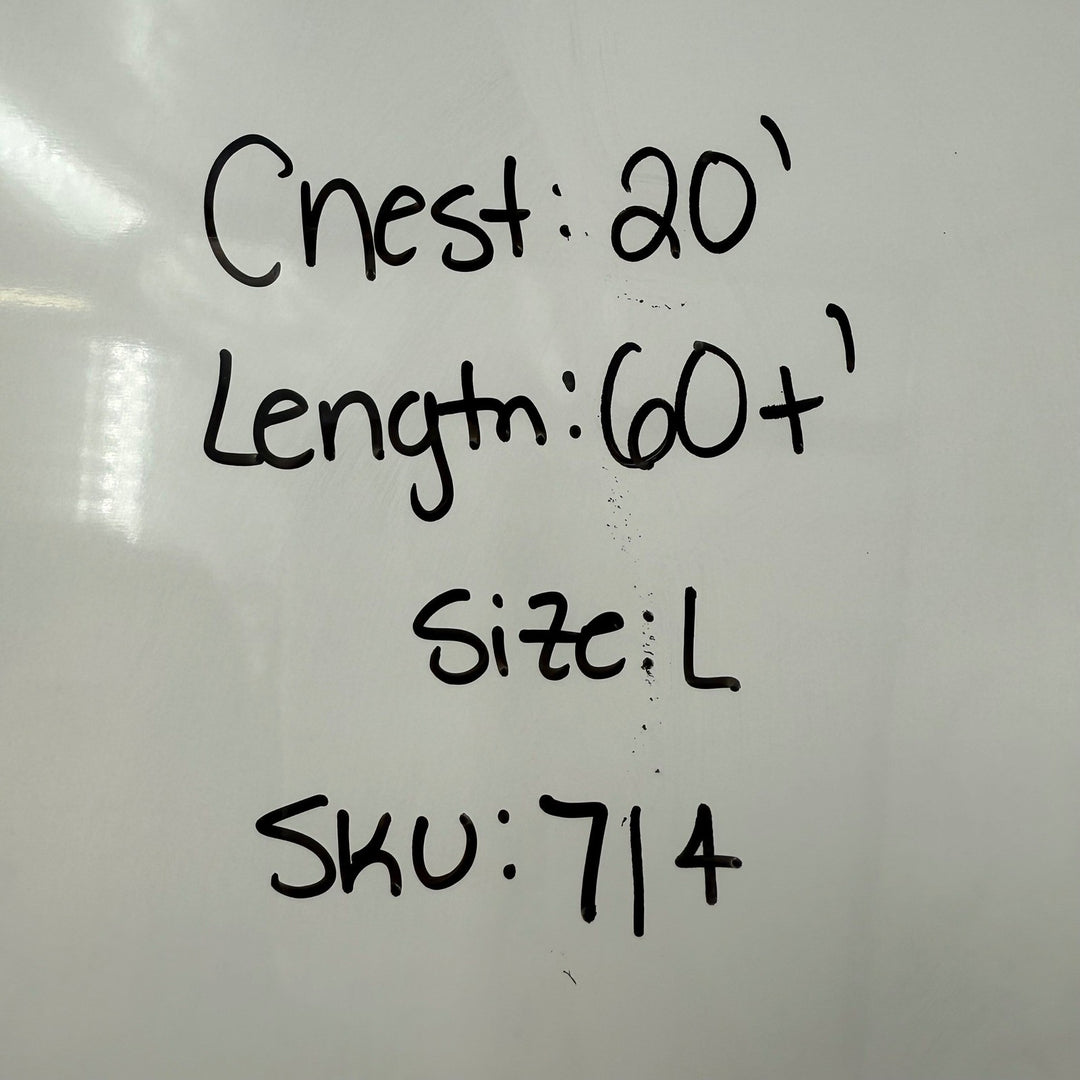 Chest: 20'
Length: 60+'
Size: L
SKU: 714